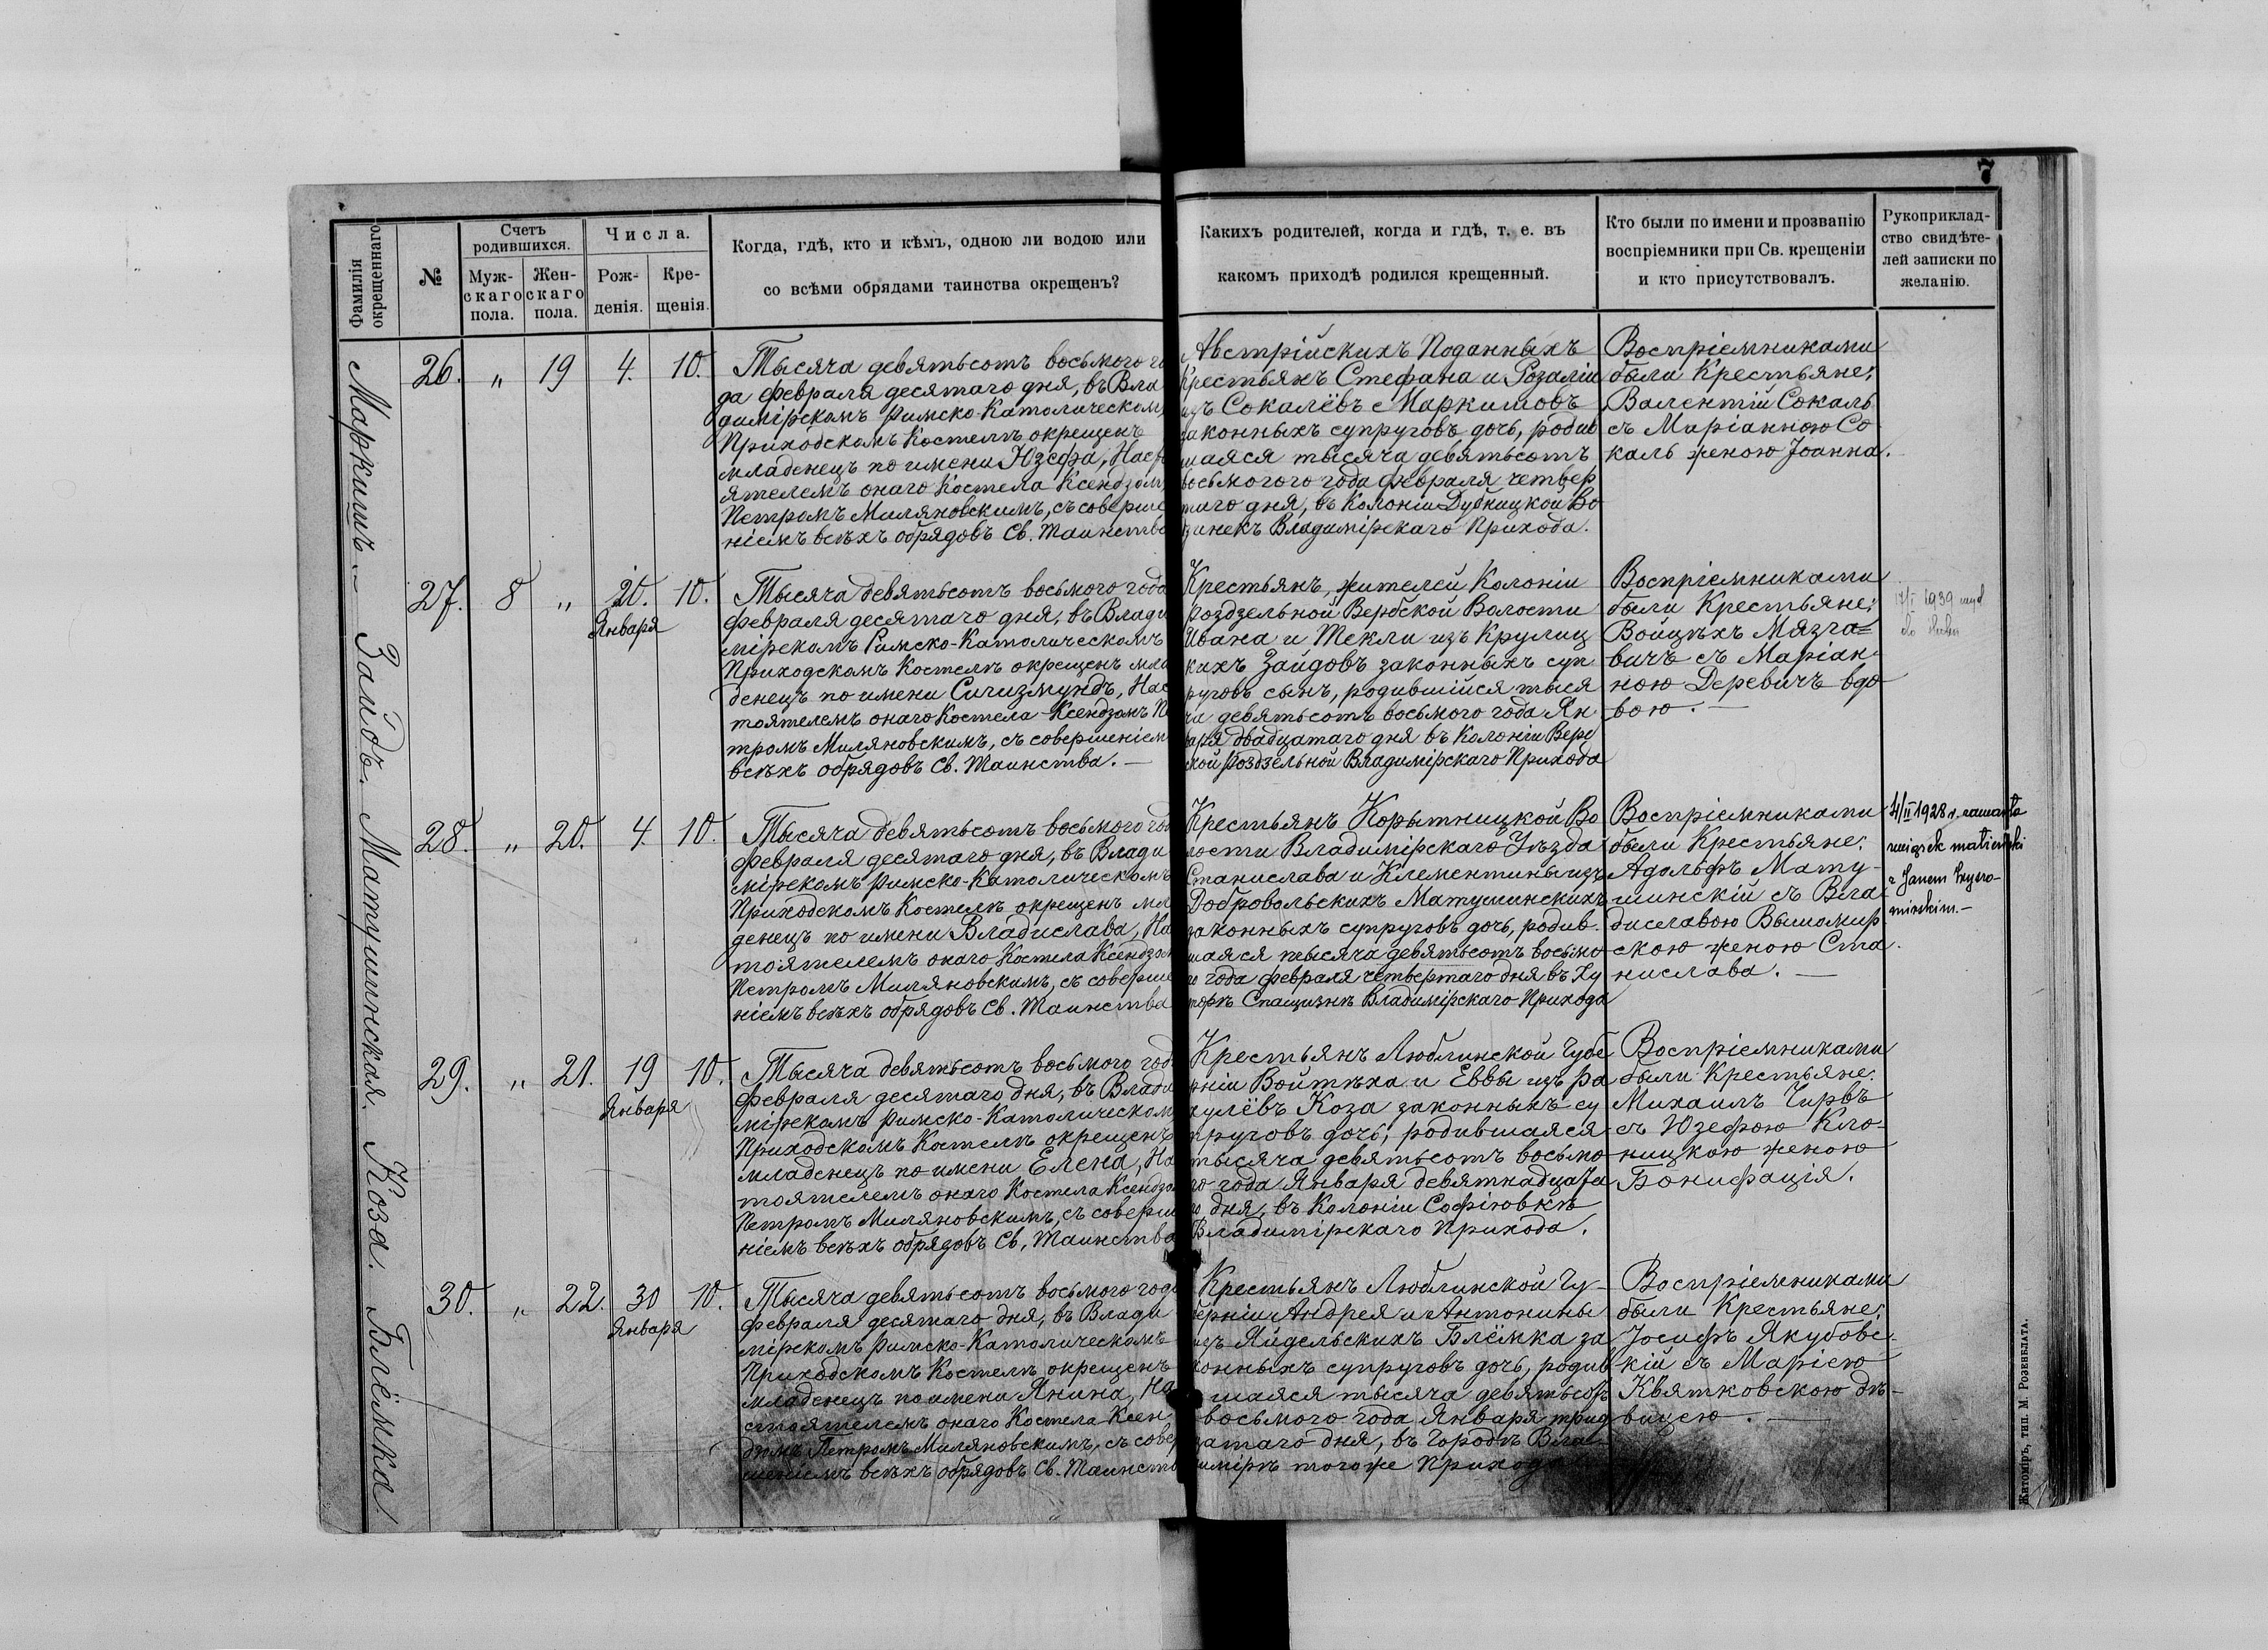 7
Фамилія
окрещеннаго
№
Счетъ
родившихся.
Муж-
скаго
пола.
Жен-
скаго
пола.
Числа.
Рож-
денія.
Кре-
щенія.
Когда, гдѣ, кто и кѣмъ, одною ли водою или
со всѣми обрядами таинства окрещенъ?
Какихъ родителей, когда и гдѣ, т. е. въ
какомъ приходѣ родился крещенный.
Кто были по имени и прозванію
воспріемники при Св. крещеніи
и кто присутствовалъ.
Рукоприклад-
ство свидѣте-
лей записки по
желанію.
Маркишъ.
26. „ 19 4. 10.
Тысяча девятьсотъ восьмого го
да февраля десятаго дня, въ Вла
димірскомъ Римско-Католическомъ
Приходскомъ Костелѣ окрещенъ
младенецъ по имени Юзефа, Наст
ятелемъ онаго Костела Ксендзомъ
Петромъ Миляновскимъ, съ соверше
ніемъ всѣхъ обрядовъ Св. Таинства
Австрійскихъ Поданныхъ
Крестьянъ Стефана и Розаліи
изъ Сокалёвъ Маркишовъ
законныхъ супруговъ дочь, родив
шаяся тысяча девятьсотъ
восьмогого года февраля четвер
таго дня, въ Колоніи Дубницкой Во
Владимірскаго Прихода.
Воспріемниками
были Крестьяне:
Валентій Сокаль
съ Маріанною Со
каль женою Іоанна.
Зайдъ.
27. 8 „ 20. 10.
Января
Тысяча девятьсотъ восьмого года
февраля десятаго дня, въ Влади
мірскомъ Римско-Католическомъ
Приходскомъ Костелѣ окрещенъ мла
денецъ по имени Сигизмундъ, Нас
тоятелемъ онаго Костела Ксендзомъ Пе
тромъ Миляновскимъ, съ совершеніемъ
всѣхъ обрядовъ Св. Таинства.—
Крестьянъ, жителей Колоніи
Роздзельной Вербской Волости
Ивана и Текли изъ Крулиц
кихъ Зайдовъ законныхъ суп
руговъ сынъ, родившійся тыся
ча девятьсотъ восьмого года Ян
варя двадцатаго дня въ Колоніи Верб
ской Роздзельной Владимірскаго Прихода
Воспріемниками
были Крестьяне:
Войцѣхъ Мязга=
вичъ съ Маріан
ною Деревичъ вдо
вою.—
1939
Матушинская.
28. „ 20. 4. 10.
Тысяча девятьсотъ восьмого год
февраля десятаго дня, въ Влади
мірскомъ Римско-Католическомъ
Приходскомъ Костелѣ окрещенъ мла
денецъ по имени Владислава, На
тоятелемъ онаго Костела Ксендзом
Петромъ Миляновскимъ, съ соверше
ніемъ всѣхъ обрядовъ Св. Таинства
Крестьянъ Корытницкой Во
лости Владимірскаго Уѣзда
Станислава и Клементины изъ
Добровольскихъ Матушинскихъ
законныхъ супруговъ дочь, родив.
шаяся тысяча девятьсотъ восьмо
го года февраля четвертаго дня въ Ху
торѣ Спащизнѣ Владимірскаго Прихода
Воспріемниками
были Крестьяне:
Адольфъ Мату-
шинскій съ Вла
диславою Вышомир
скою женою Ста
нислава.—
II 1928 r. zawarła
związek małżeński
z Janem
Коза.
29. „ 21. 19 10.
Января
Тысяча девятьсотъ восьмого год
февраля десятаго дня, въ Влади
мірскомъ Римско-Католическом
Приходскомъ Костелѣ окрещенъ
младенецъ по имени Елена, На
тоятелемъ онаго Костела Ксендзо
Петромъ Миляновскимъ, съ соверше
ніемъ всѣхъ обрядовъ Св. Таинства
Крестьянъ Люблинской Губе
рніи Войтѣха и Еввы изъ Ра
кулёвъ Коза законныхъ су
пруговъ дочь, родившаяся
тысяча девятьсотъ восьмо
го года Января девятнадцата
го дня, въ Колоніи Софіювкѣ
Владимірскаго Прихода.
Воспріемниками
были Крестьяне:
Михаилъ Гирвъ
съ Юзефою Кло-
ницкою женою
Бонифація.
Блёмка
30. „ 22. 30 10.
Января
Тысяча девятьсотъ восьмого года
февраля десятаго дня, въ Влади
мірскомъ Римско-Католическомъ
Приходскомъ Костелѣ окрещенъ
младенецъ по имени Янина, На
стоятелемъ онаго Костела Ксен
дзомъ Петромъ Миляновскимъ, съ совер
шеніемъ всѣхъ обрядовъ Св. Таинств
Крестьянъ Люблинской Гу-
берніи Андрея и Антонины
изъ Яйдельскихъ Блёмка за
конныхъ супруговъ дочь, родив
шаяся тысяча девятьсотъ
восьмого года Января трид
цатаго дня, въ Городѣ Вла-
димірѣ тогоже Прихода
Воспріемниками
были Крестьяне:
Іосифъ Якубовс-
кій съ Маріею
Квятковскою дѣ-
вицею.—
Житоміръ, тип. М. Розенблата.